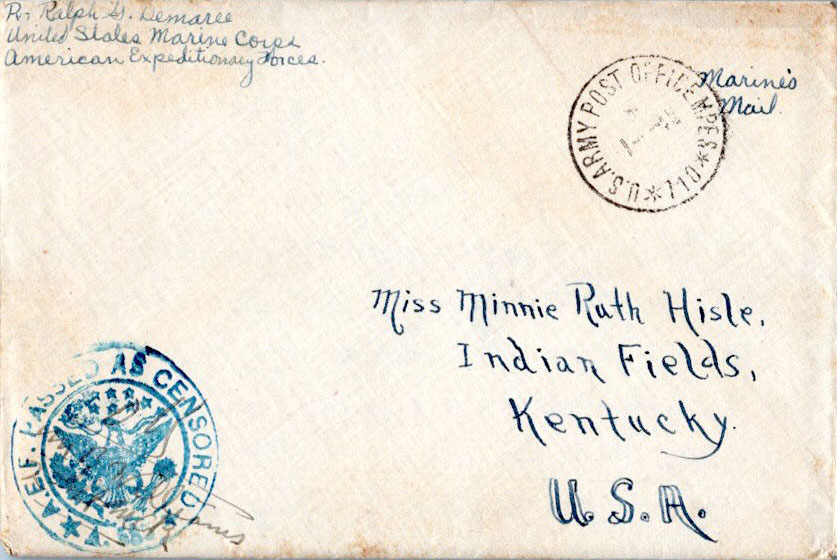 Ralph G. Demaree
United States Marine Corps
American Expeditionary Forces.
Marine's
Mail.
U.S. ARMY POST OFFICE M.P.E.S. * 710 *
Miss Minnie Ruth Hisle,
Indian Fields,
Kentucky.
U.S.A.
A.E.F. PASSED AS CENSORED